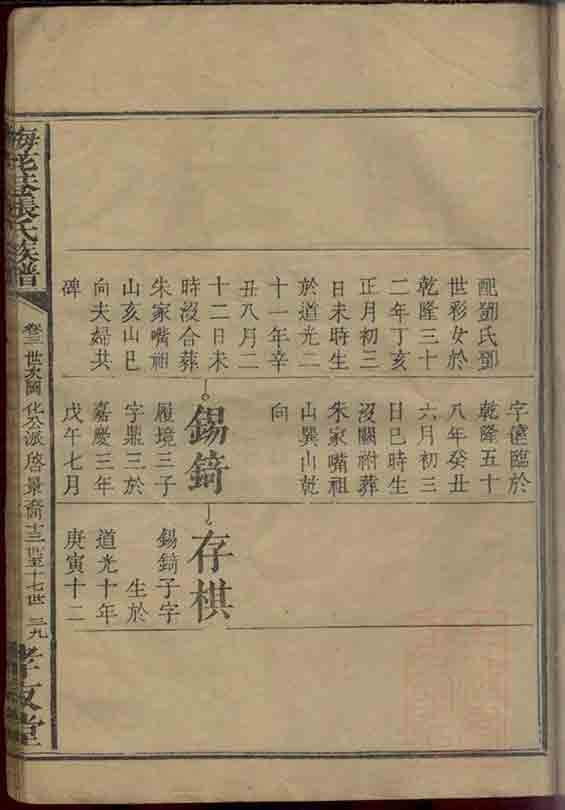 配劉氏鄧
世彩女於
乾隆三十
二年丁亥
正月初三
日未時生
於道光二
十一年辛
丑八月二
十二日未
時沒合葬
朱家嘴祖
山亥山巳
向夫婦共
碑
字僖臨於
乾隆五十
八年癸丑
六月初三
日巳時生
沒闕祔葬
朱家嘴祖
山巽山乾
向
錫錡
履境三子
字鼎三於
嘉慶三年
戊午七月
存棋
錫錡子字
生於
道光十年
庚寅十二
張氏族譜
卷三 世次圖 化公派 啓景裔十三世至十七世 二九
孝友堂